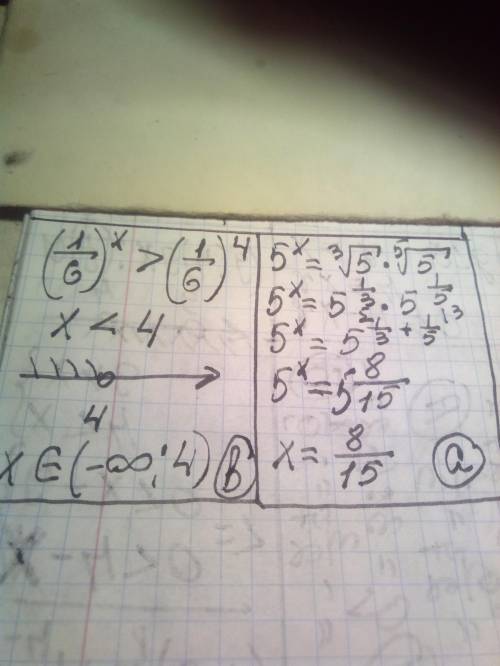 (1/6)^x > (1/6)^4
x < 4
4
x ∈ (-∞; 4) B
5^x = ∛5 · ⁵√5
5^x = 5^(1/3) · 5^(1/5)
5^x = 5^(1/3 + 1/5)
5^x = 5^(8/15)
x = 8/15 a